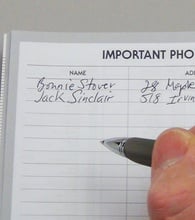 IMPORTANT PHO
NAME AD
Bonnie Stover 28 Maple
Jack Sinclair 518 Irvin